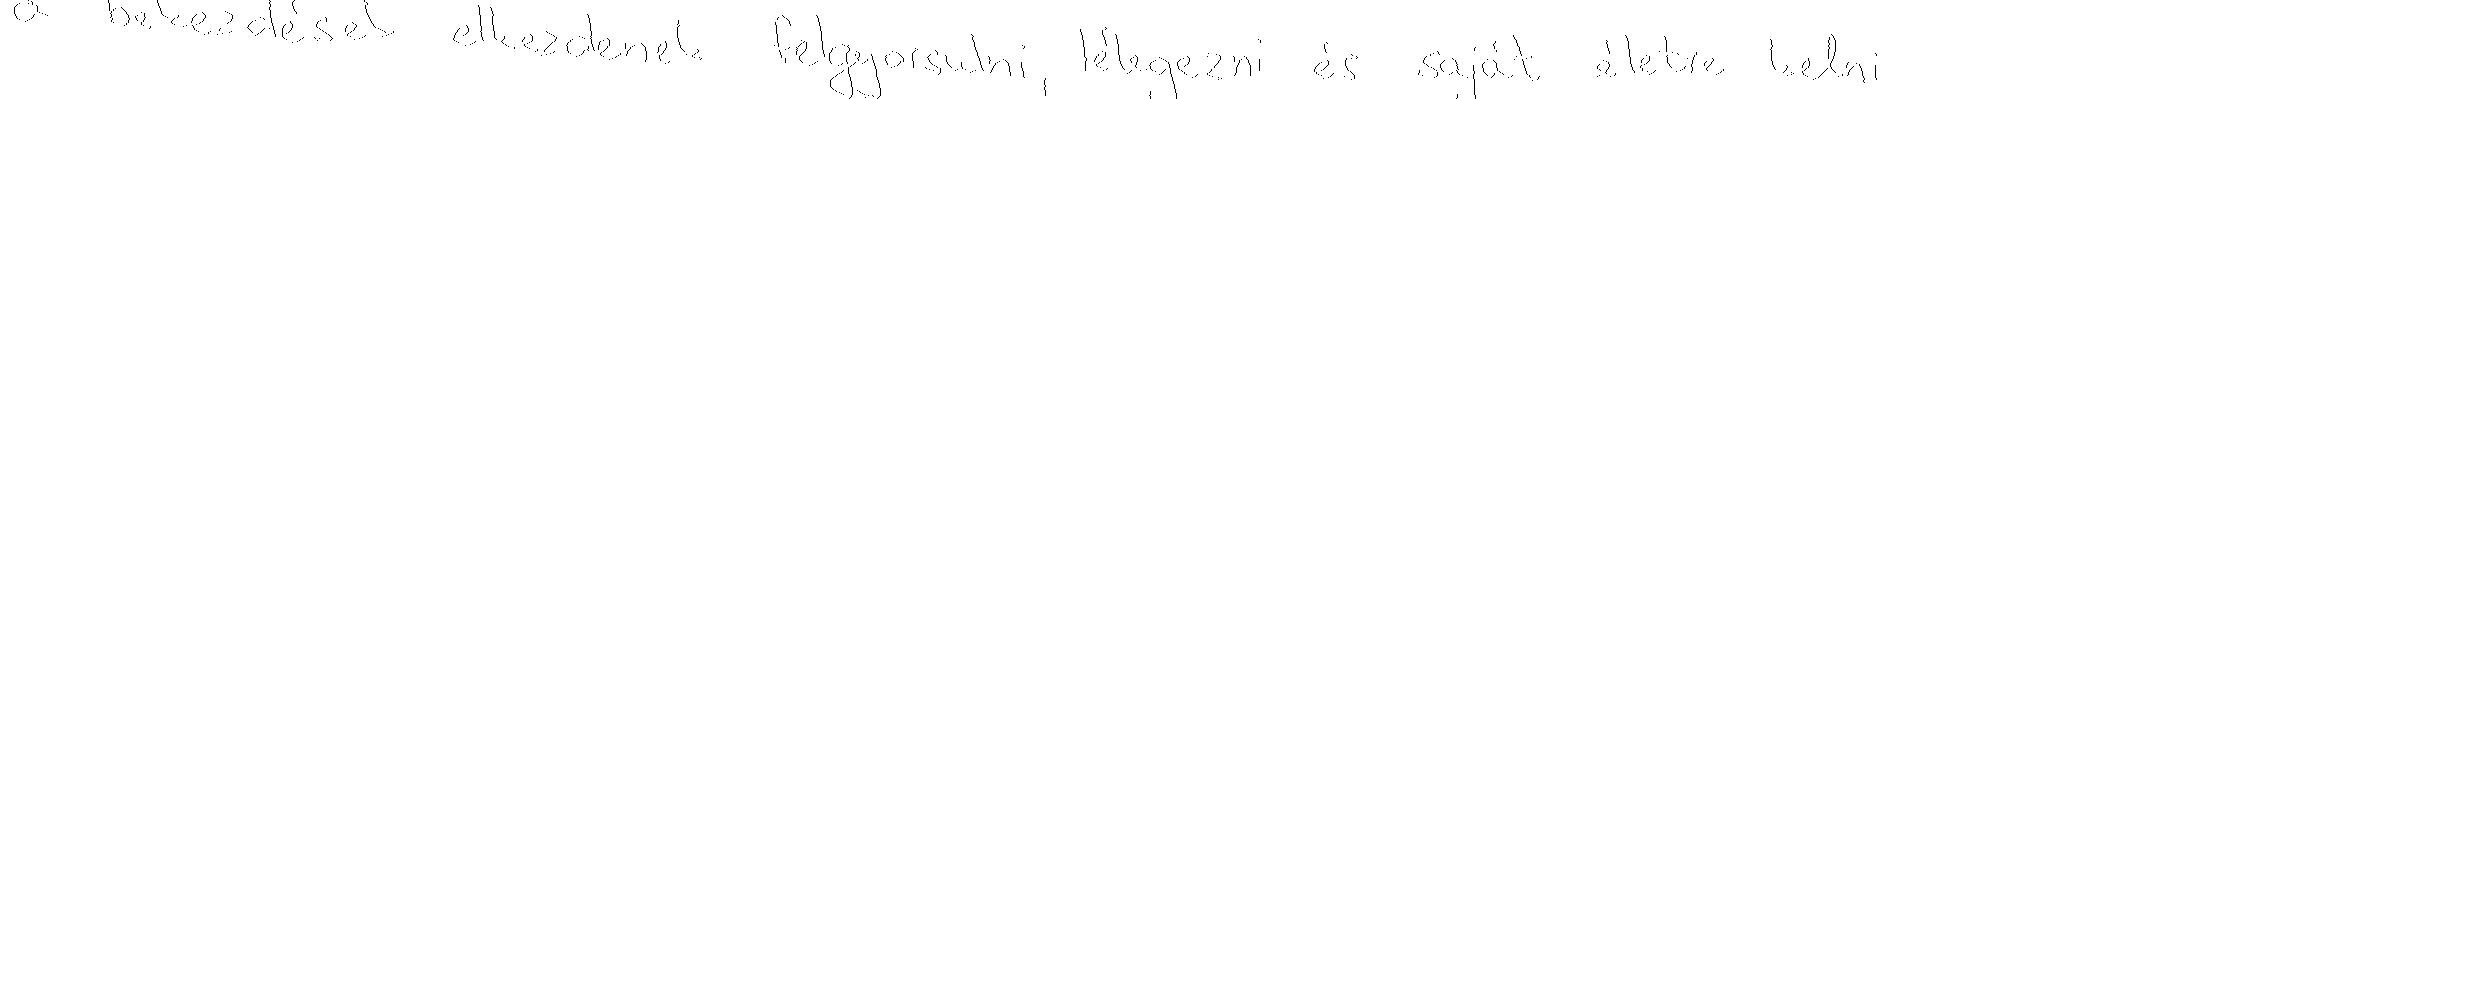 a bekezdések elkezdenek felgyorsulni, lélegezni és saját életre kelni